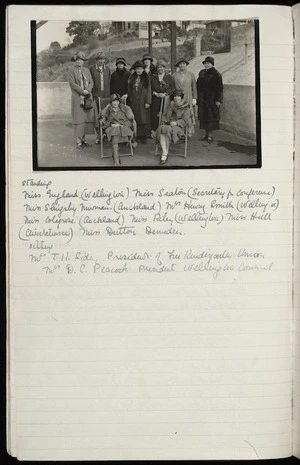 Standing
Miss England (Wellington) Miss Seaton (Secretary for conference)
Miss Slingsby Newman (Auckland) Mrs Henry Smith (Welling on)
Miss Colgrove (Auckland) Miss Riley (Wellington) Miss Hull
(Christchurch) Miss Dutton Dunedin.
sitting
Mrs T.K. Sidey, President of Free Kindergarten Union
Mrs D. C. Peacock President Wellington Council